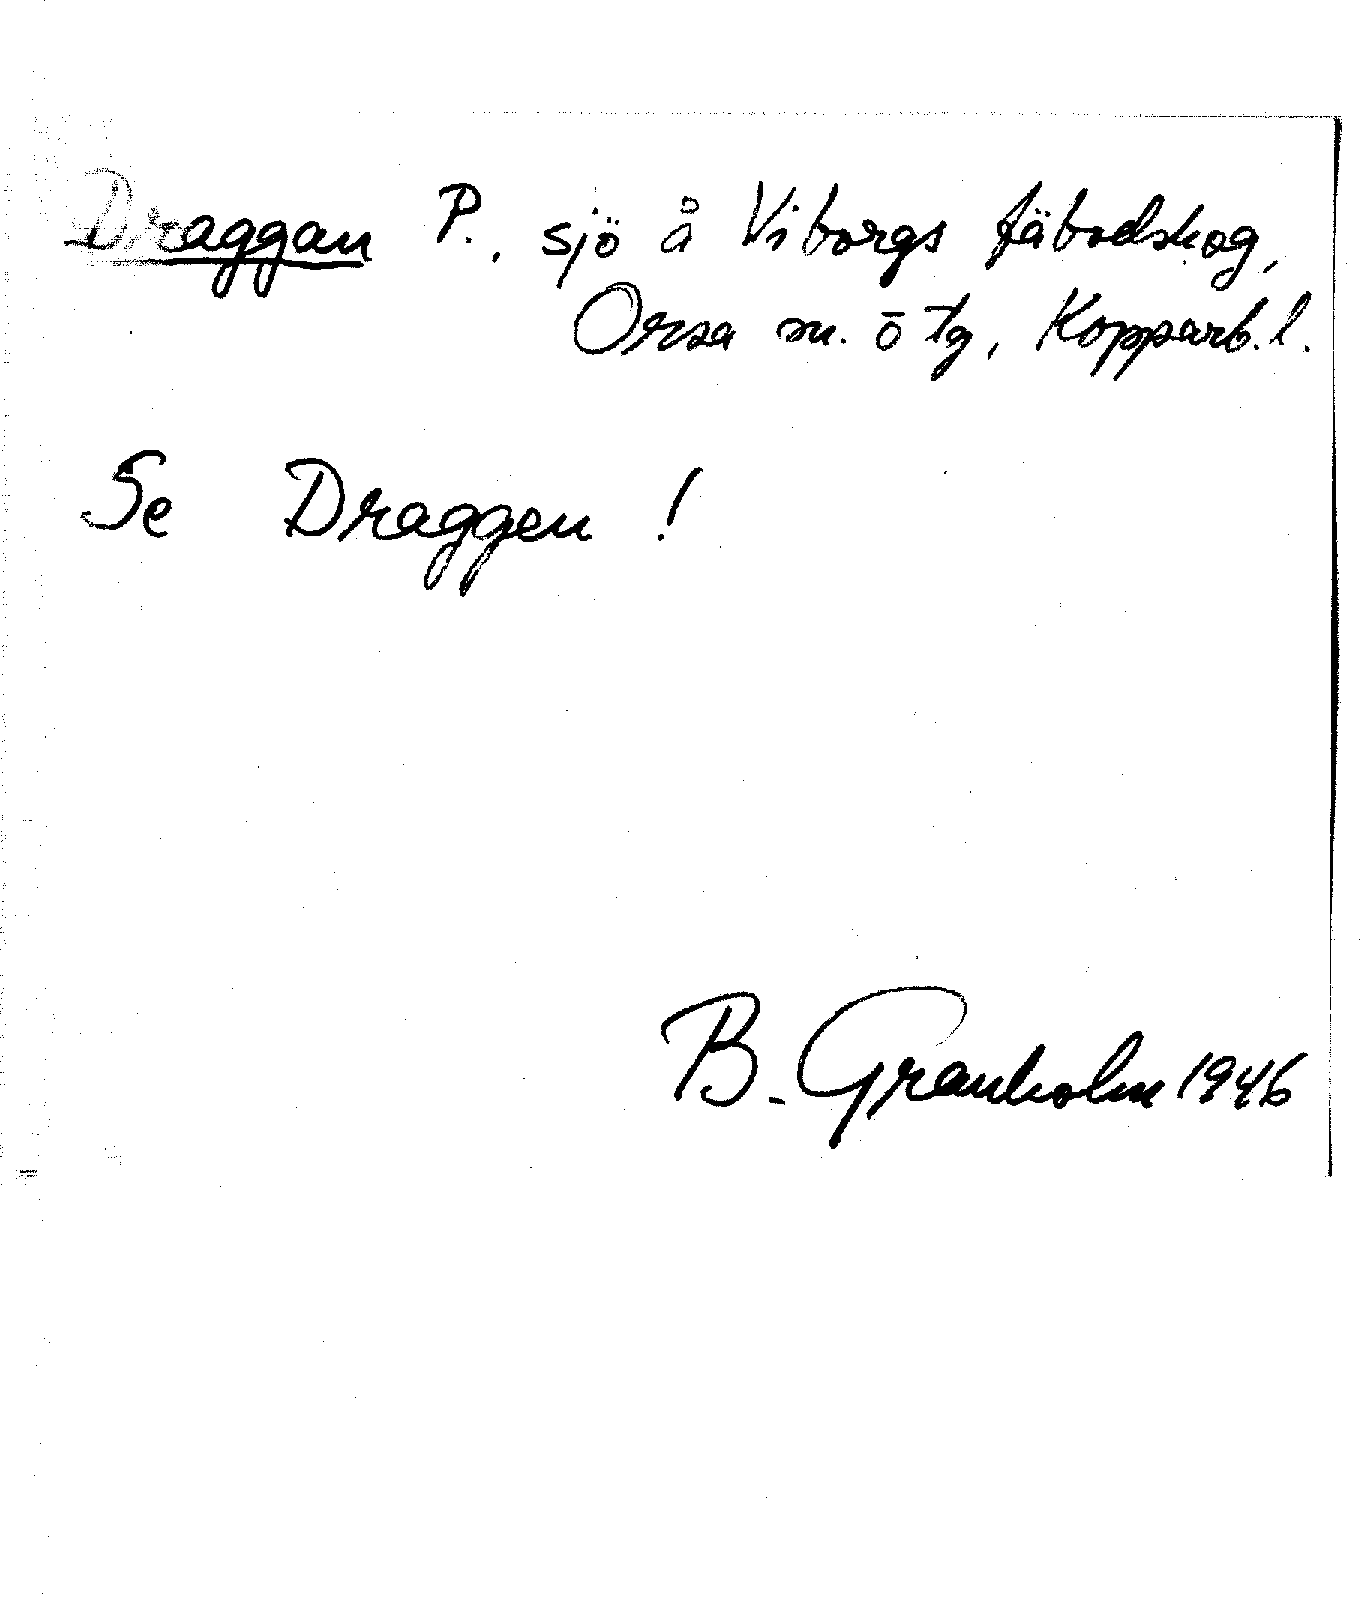 Draggan P., sjö å Viborgs fäbodskog,
Orsa sn. o tg, Kopparb. l.
Se Draggen !
B. Granholm 1946